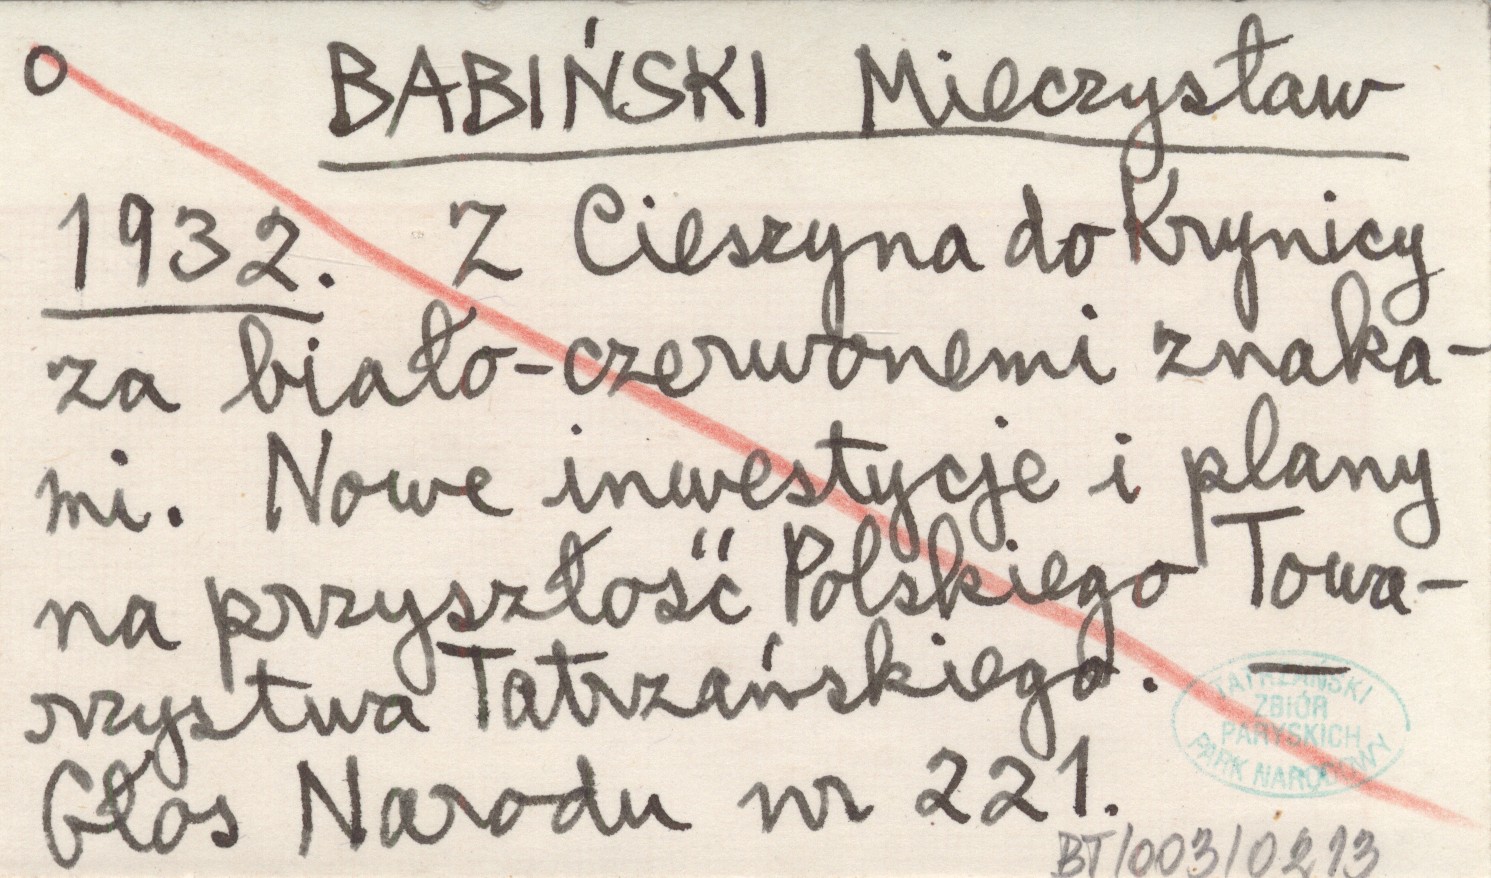 o BABIŃSKI Mieczysław
1932. Z Cieszyna do Krynicy
za biało-czerwonemi znaka-
mi. Nowe inwestycje i plany
na przyszłość Polskiego Towa-
rzystwa Tatrzańskiego. —
Głos Narodu nr 221.
TATRZAŃSKI
ZBIÓR
PARYSKICH
PARK NARODOWY
BT/003/0213